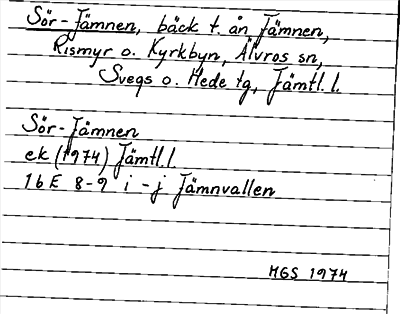 Sör-Jämnen, bäck t. ån Jämnen,
Rismyr o. Kyrkbyn, Älvros sn,
Svegs o. Hede tg, Jämtl. l.
Sör-Jämnen
ek (1974) Jämtl. l
16E 8-9 i-j Jämnvallen
MGS 1974